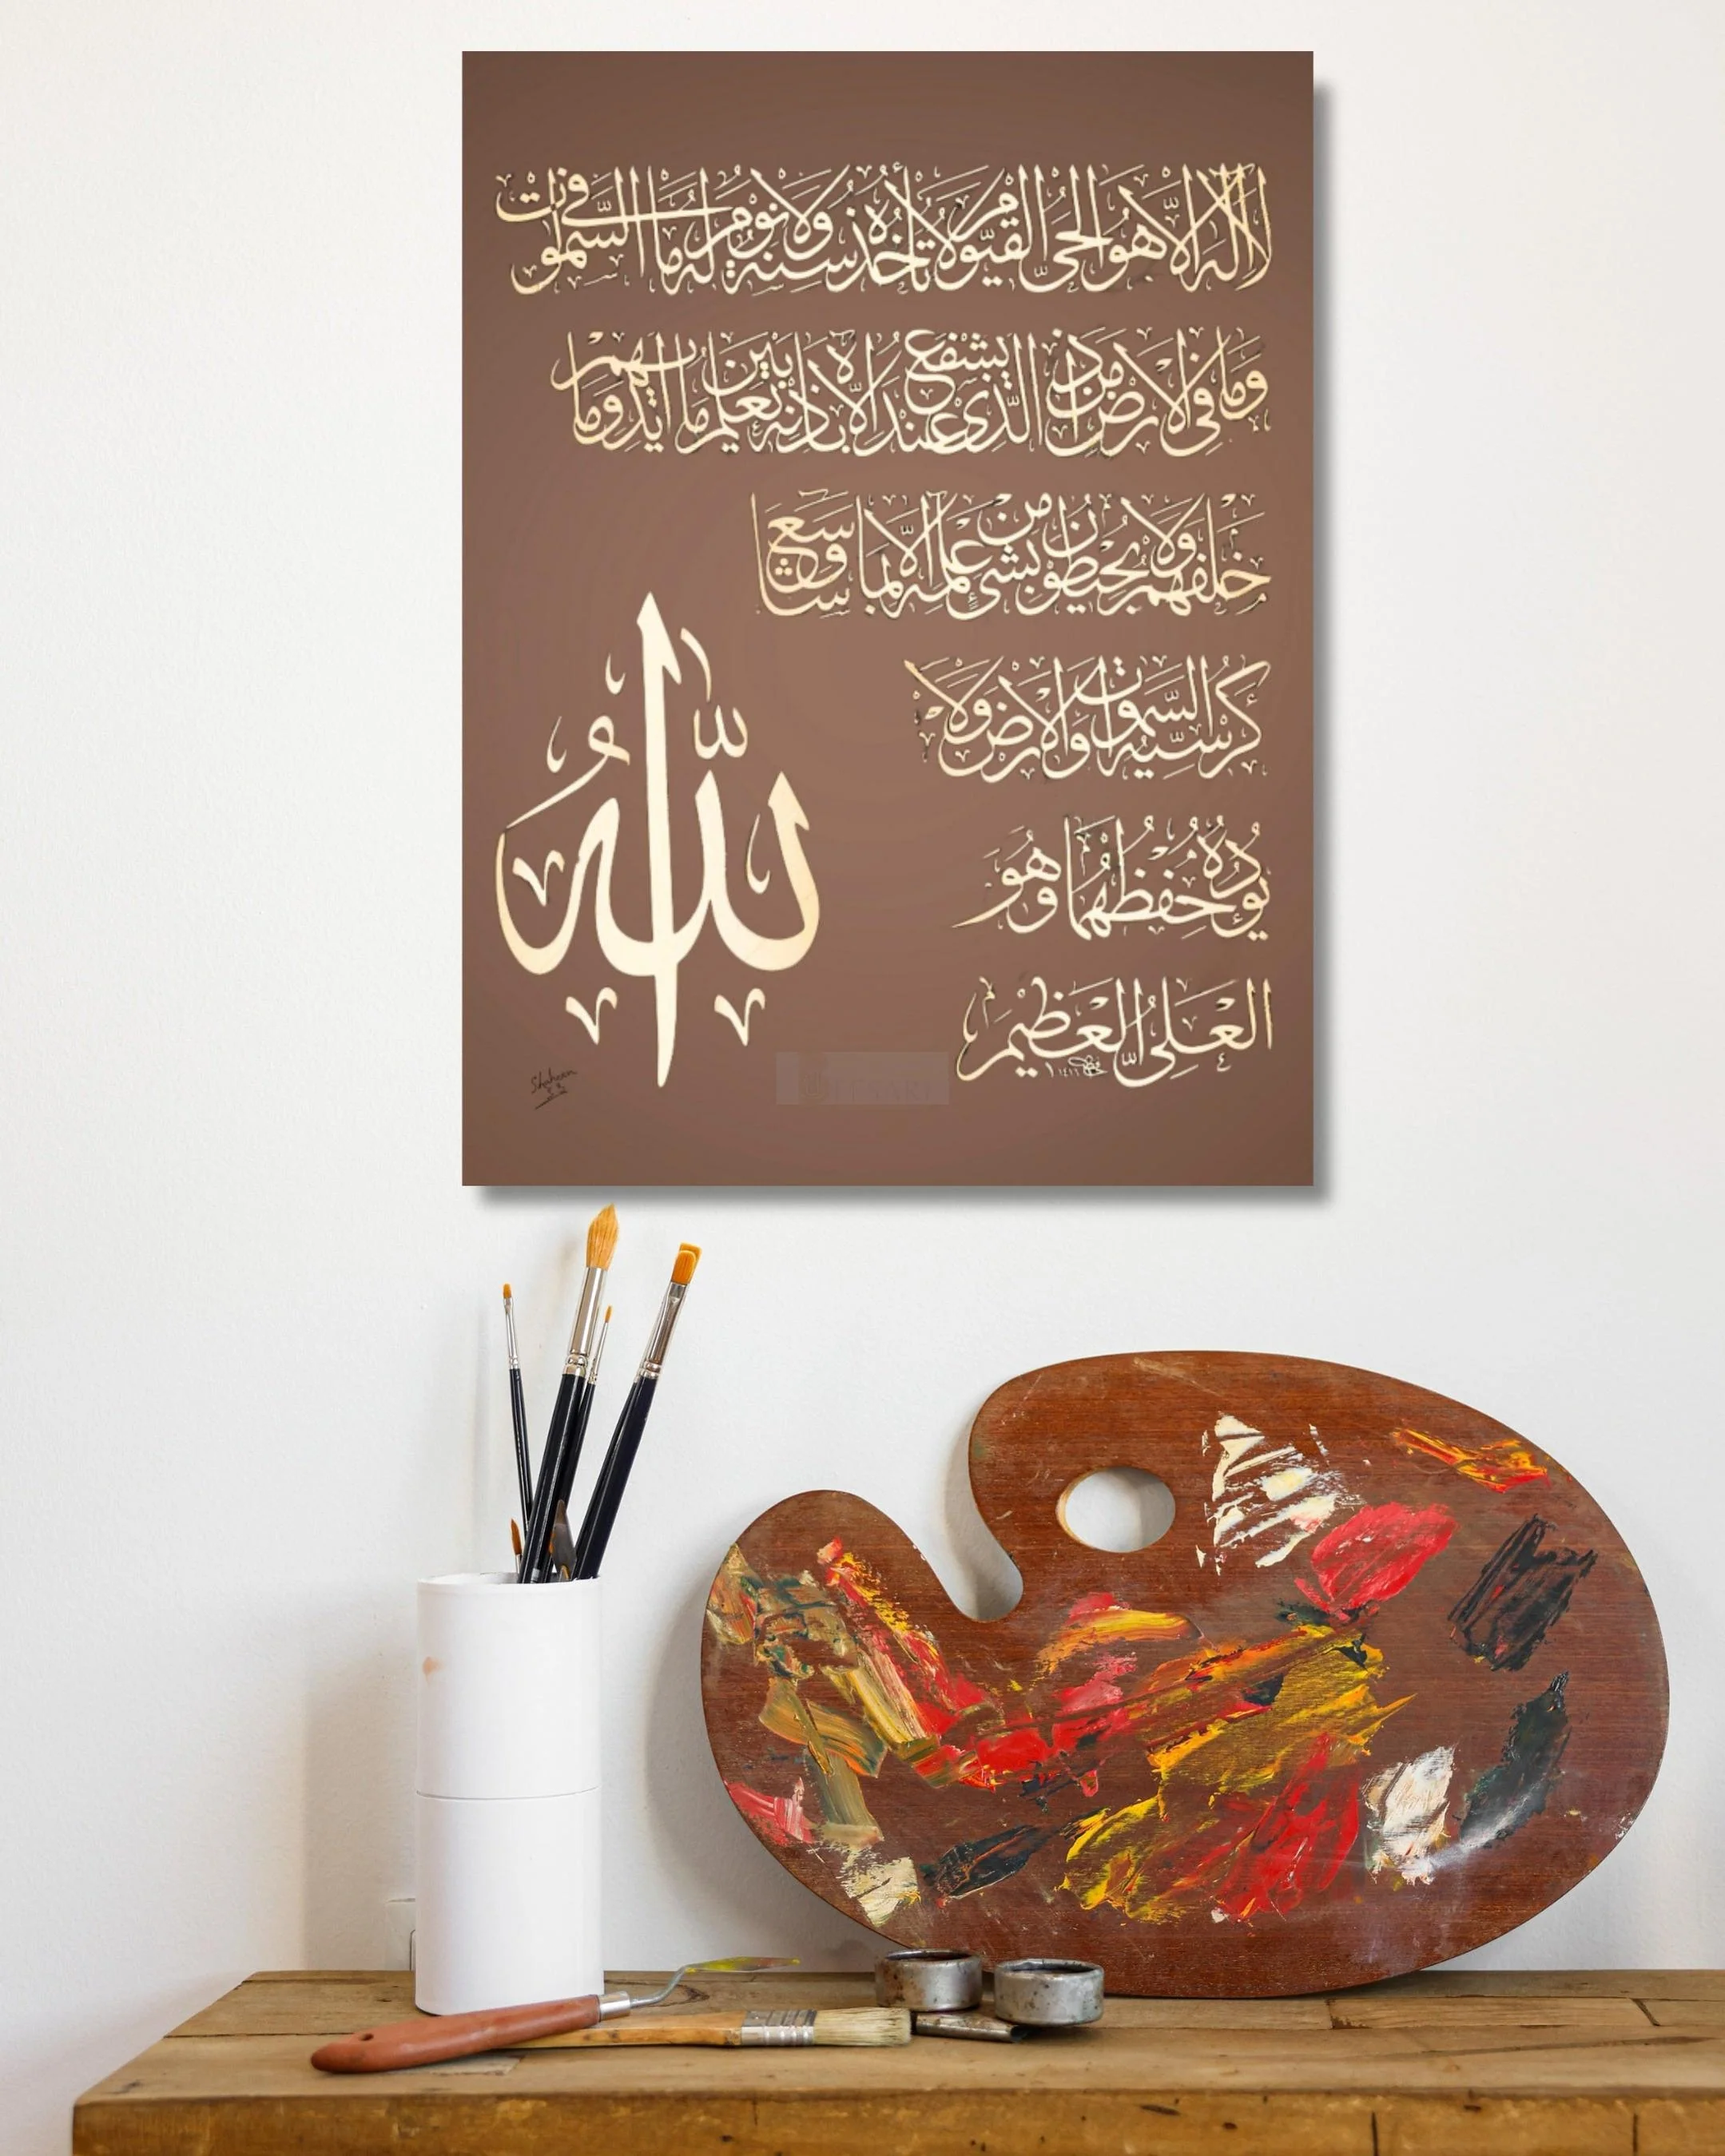 لا إله إلا هو الحي القيوم لا تأخذه سنة ولا نوم له ما في السموت
وما في الارض من ذا الذي يشفع عنده الا باذنه يعلم ما بين ايديهم وما
خلفهم ولا يحيطون بشيء من علمه الا بما شاء وسع
كرسيه السموت والارض ولا
يؤده حفظهما وهو
العلي العظيم
الله
Shaheen